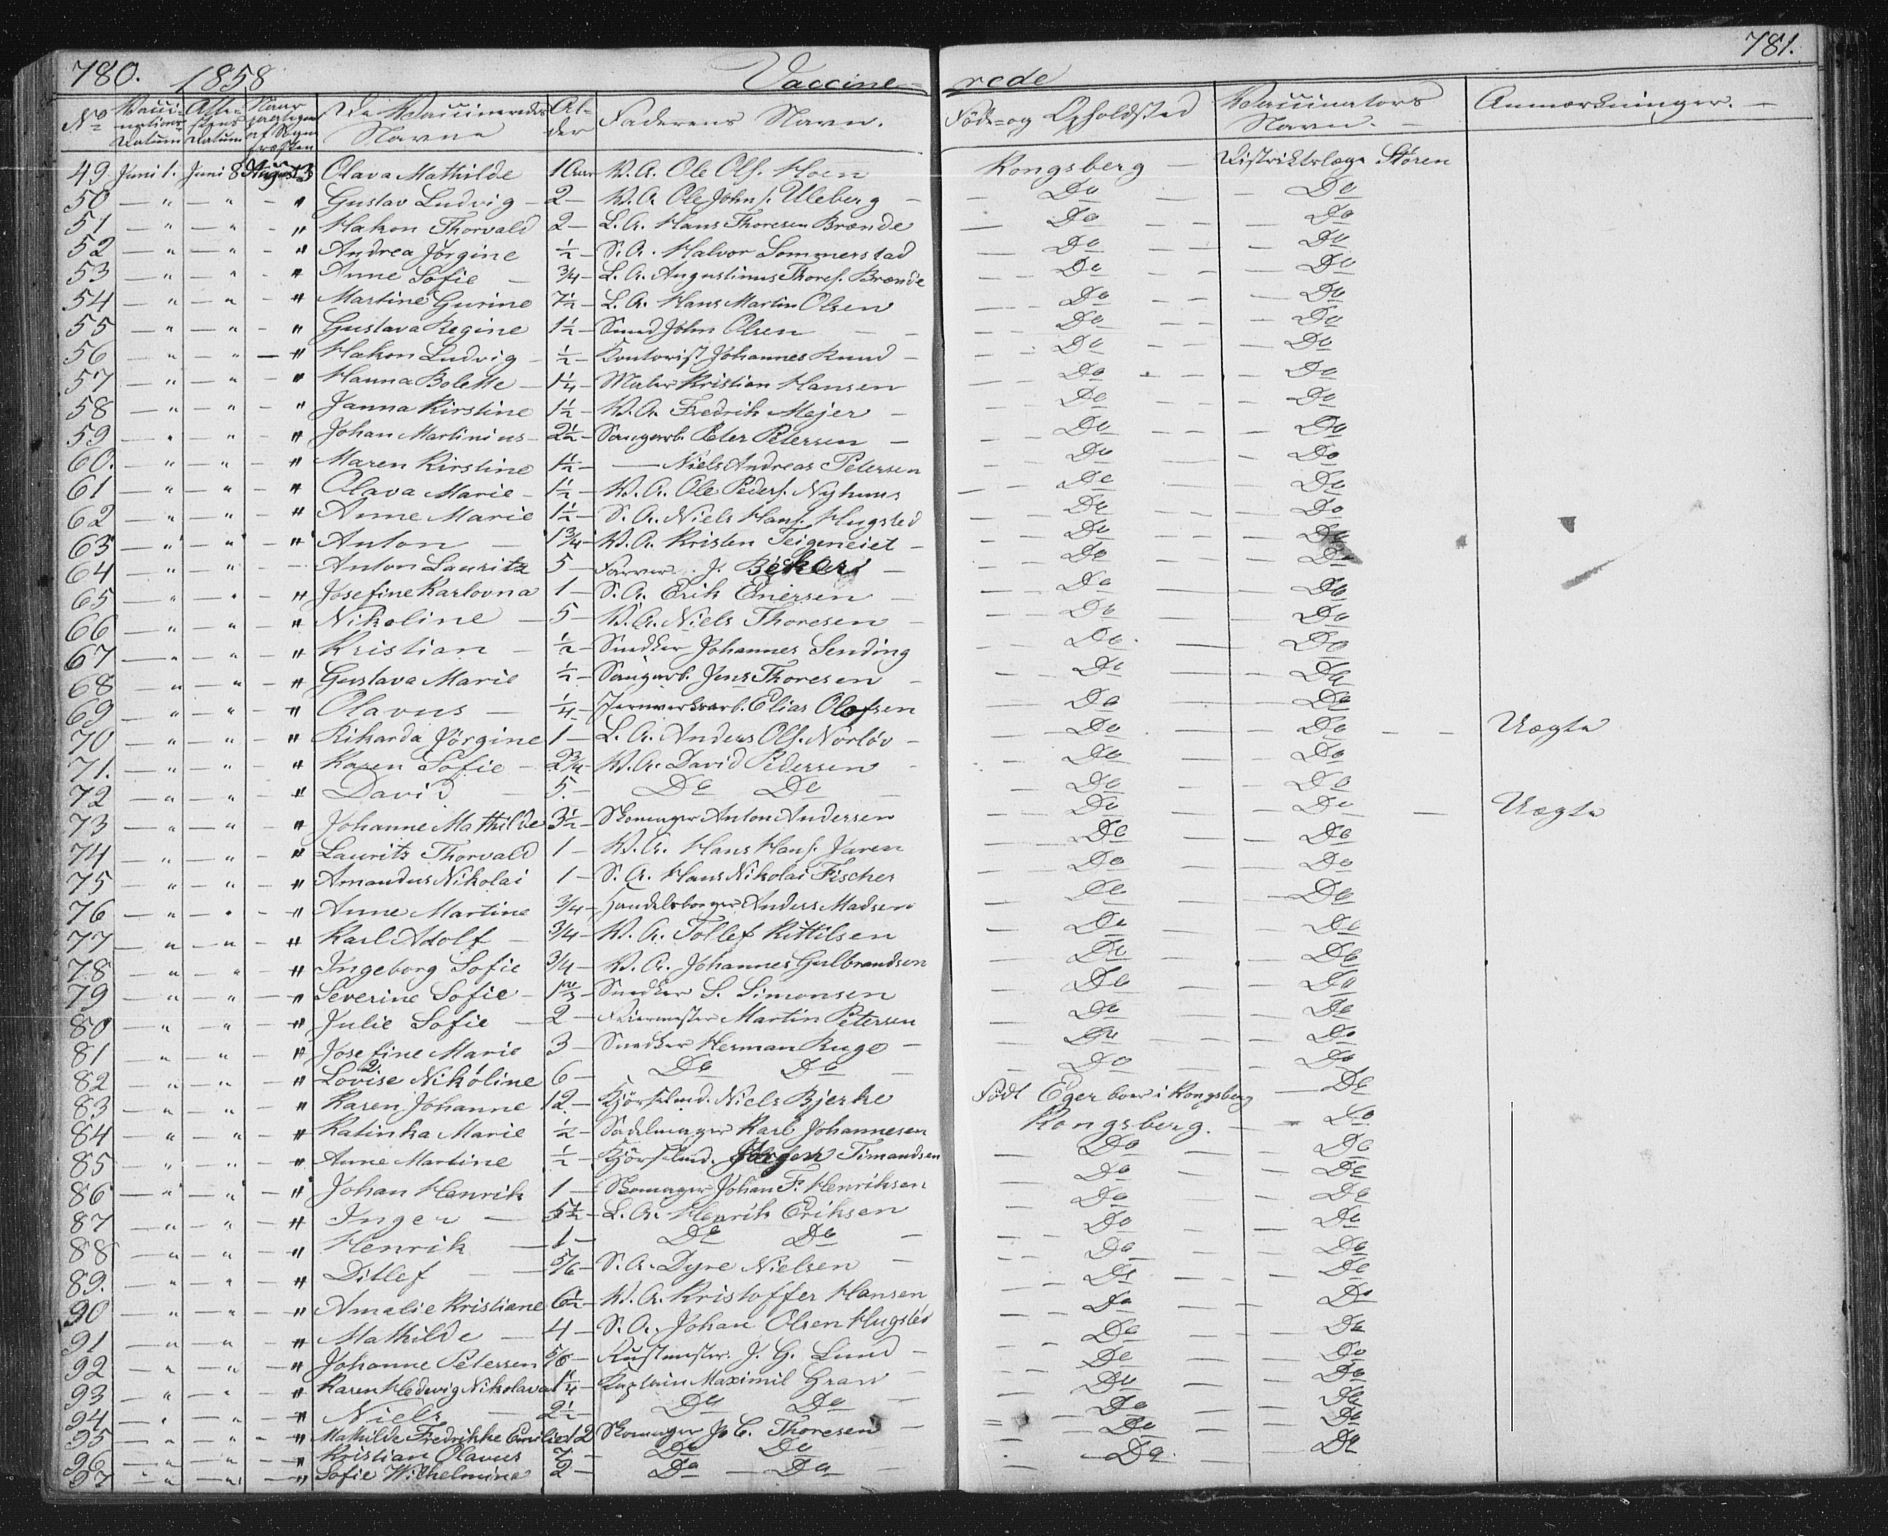 780. 1858 Vaccine- rede 781.
No Vaccinations Datum Datum Naar De Vaccineredes Navne Alder Faderens Navn. Føde- og Opholdsted Vaccinators Navn. Anmærkninger. —
49 Juni 1. Juni 8 August 3 Olava Mathilde 1 Aar V. A. Ole Ols. Hoen Kongsberg — Distriktslæge Støren
50 — " — " — " Gustav Ludvig — 2 — V. A. Ole Johns. Uleberg — Do Do
51 — " — " — " Hakon Thorvald 2 — L. A. Hans Thoresen Brænde Do Do
52 — " — " — " Andrea Jörgine ½ — S. A. Halvor Sommerstad Do Do
53 — " — " — " Anne Sofie — ¾ — L. A. Augustinus Thores. Brænde Do Do
54 — " — " — " Martine Gurine 7½ — L. A. Hans Martin Olsen Do Do
55 — " — " — " Gustava Regine 1½ — Smed John Olsen — Do Do
56 — " — " — " Hakon Ludvig — ½ — Kontorist Johannes Knud — Do Do
57 — " — " — " Hanna Bolette — 1¼ — Maler Kristian Hansen Do Do
58 — " — " — " Janna Kirstine 1½ — V. A. Fredrik Mejer — Do Do
59 — " — " — " Johan Martinius — 2½ — Saugarb. Peter Petersen — Do Do
60. — " — " — " Maren Kirstine 1½ — — Niels Andreas Petersen Do Do
61 — " — " — " Olava Marie — 1½ — V. A. Ole Peders. Nyhuus Do Do
62 — " — " — " Anne Marie 1½ — S. A. Niels Hans. Hugsted Do Do
63 — " — " — " Anton — 1¾ — V. A. Kristen Teigeneiet — Do Do
64 — " — " — Anton Lauritz 5 — Farver J. Bekers — Do Do
65 — " — " — " Josefine Karlovna 1 — S. A. Erik Enersen — Do Do
66 — " — " — " Nikoline — 5 — V. A. Niels Thoresen — Do Do
67 — " — " — " Kristian — ½ — Snedker Johannes Sending Do Do
68 — " — " — " Gustava Marie ½ — Saugarb. Jens Thoresen — Do Do
69 — " — " — " Olavus — ¼ — Jernverksarb. Elias Olofsen Do Do
70 — " — " — " Rikarda Jörgine 1 — L. A. Anders Ols. Nörlöv — Do Do — Uægte
71. — " — " — " Karen Sofie — 2¾ — V. A. David Pedersen — Do Do
72 — " — " — " David — 5. — Do Do — Do Do
73 — " — " — " Johanne Mathilde 3½ — Skomager Anton Andersen Do Do — Uægte
74 — " — " — " Laurits Thorvald 1 — V. A. Hans Hans. Jaren Do Do
75 — " — " — " Amandus Nikolai 1 — S. A. Hans Nikolai Fischer Do Do
76 — " — " — " Anne Martine ¾ — Handelsborger Anders Madsen Do Do
77 — " — " — " Karl Adolf — ¾ — V. A. Tollef Kittilsen Do Do
78 — " — " — " Ingeborg Sofie ¾ — V. A. Johannes Gulbrandsen Do Do
79 — " — " — " Severine Sofie — 1⅔ — Snedker S. Simonsen Do Do
80 — " — " — " Julie Sofie — 2 — Feiermester Martin Petersen Do Do
81 — " — " — " Josefine Marie 3 — Snedker Herman Ruge — Do Do
82 — " — " — " Lovise Nikoline 6 — Do Do — Do Do
83 — " — " — " Karen Johanne 12 — Kjörselmd. Niels Bjerke Født Eger boer i Kongsberg — Do
84 — " — " — " Katinka Marie ½ — Sadelmager Karl Johannesen Kongsberg. — Do
85 — " — " — " Anne Martine ½ — Kjörselmd. Jörgen Timandsen Do Do
86 — " — " — " Johan Henrik 1 — Skomager Johan F. Henriksen Do Do
87 — " — " — " Inger — 5½ — L. A. Henrik Eriksen Do Do
88 — " — " — " Henrik — 1 — Do Do — Do Do
89. — " — " — " Ditlef — 5/6 — S. A. Dyre Nielsen — Do Do
90 — " — " — " Amalie Kristiane 6½ — V. A. Kristoffer Hansen Do Do
91 — " — " — " Mathilde — 4 — S. A. Johan Olsen Hugsted Do Do
92 — " — " — " Johanne Petersen 5/6 — Rustmester J. G. Lund — Do Do
93 — " — " — " Karen Hedevig Nikolava 1¼ — Kaptain Maximil Gran — Do Do
94 — " — " — " Niels — 2½ — Do Do — Do Do
95 — " — " — " Mathilde Fredrikke Emilie 12 Skomager Jo C. Thoresen Do Do
96 — " — " — " Kristian Olavus 7 — Do Do Do Do
97 — " — " — " Sofie Wilhelmine 2 — Do — Do